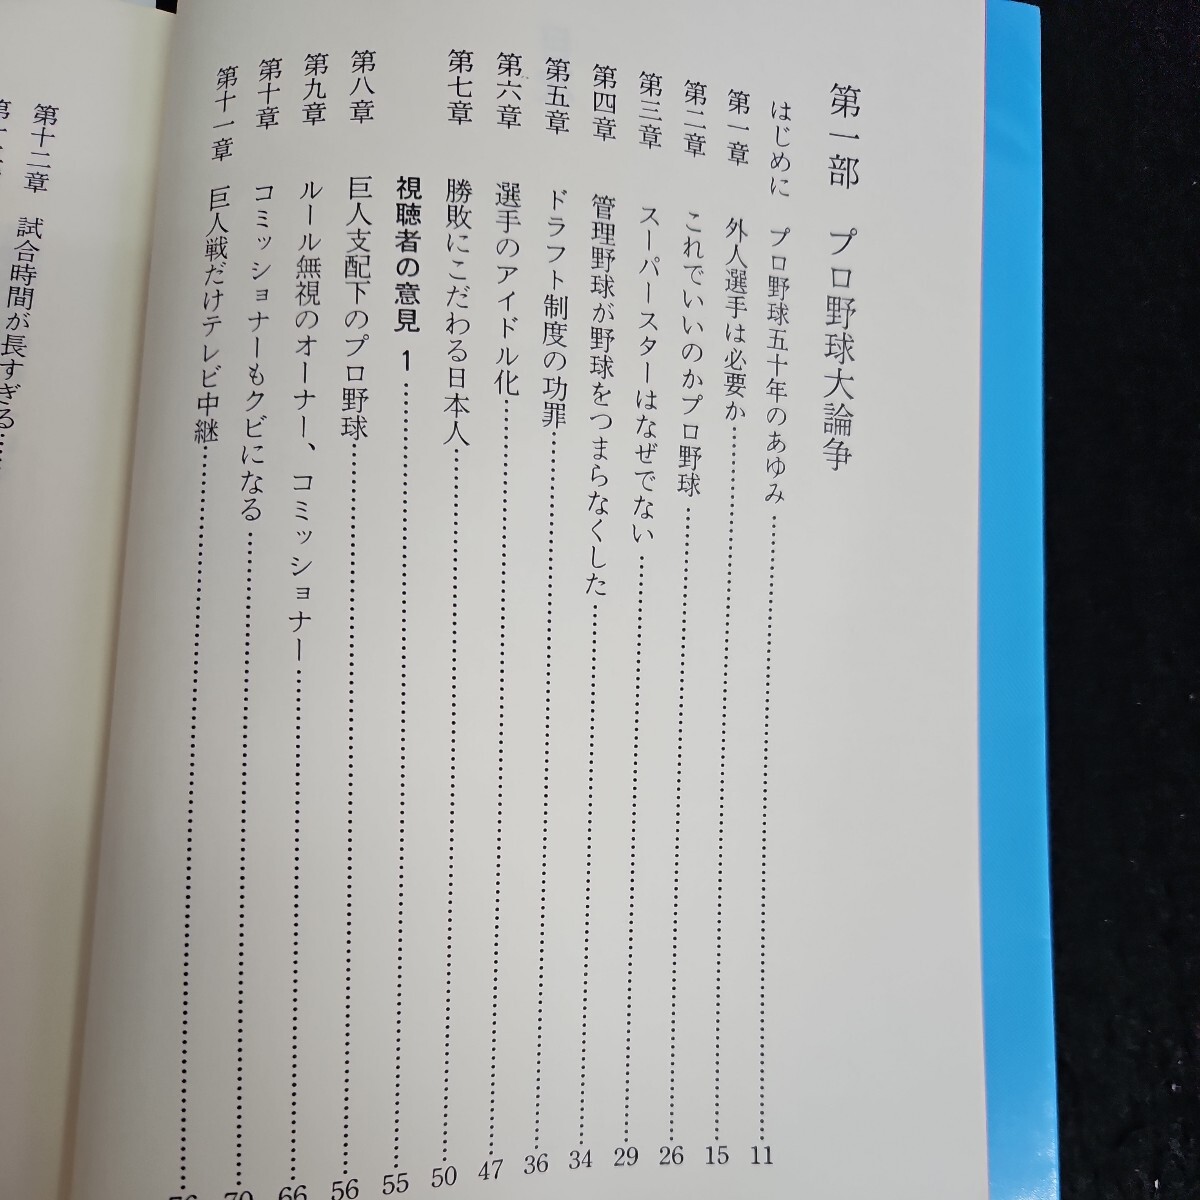 第一部 プロ野球大論争
はじめに プロ野球五十年のあゆみ……………11
第一章 外人選手は必要か……………15
第二章 これでいいのかプロ野球……………26
第三章 スーパースターはなぜでない……………29
第四章 管理野球が野球をつまらなくした……………34
第五章 ドラフト制度の功罪……………36
第六章 選手のアイドル化……………47
第七章 勝敗にこだわる日本人……………50
視聴者の意見 1……………55
第八章 巨人支配下のプロ野球……………56
第九章 ルール無視のオーナー、コミッショナー……………66
第十章 コミッショナーもクビになる……………70
第十一章 巨人戦だけテレビ中継……………76
第十二章 試合時間が長すぎる……